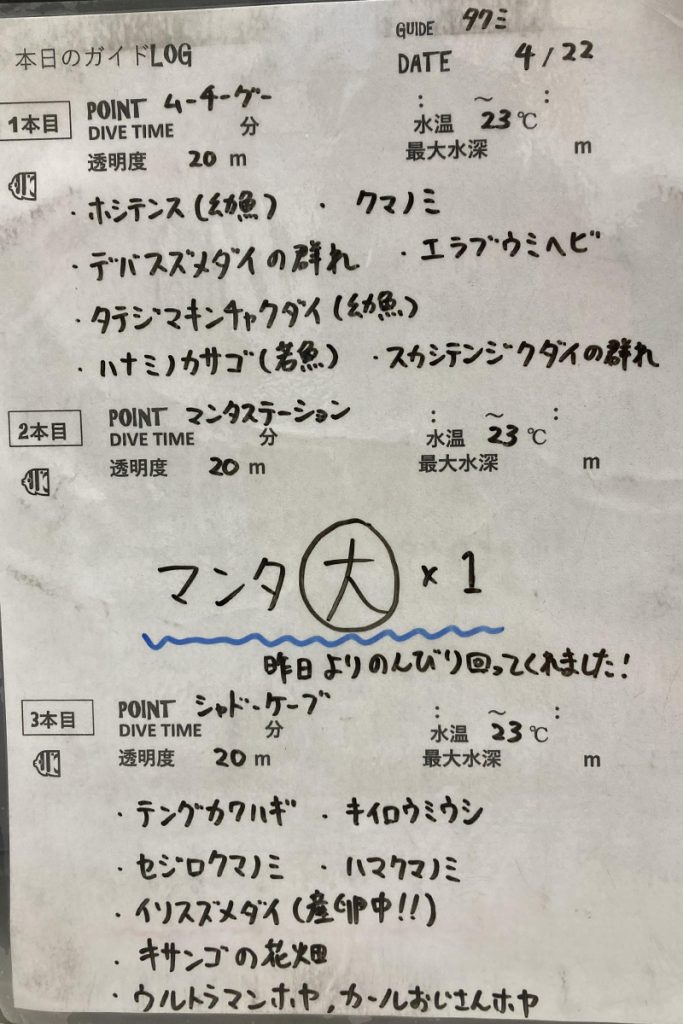 GUIDE タクミ
本日のガイドLOG DATE 4/22
1本目 POINT ムーチーグー : ～ :
DIVE TIME 分 水温 23℃
透明度 20 m 最大水深 m
・ホシテンス(幼魚) ・クマノミ
・デバスズメダイの群れ ・エラブウミヘビ
・タテジマキンチャクダイ(幼魚)
・ハナミノカサゴ(若魚) ・スカシテンジクダイの群れ
2本目 POINT マンタステーション : ～ :
DIVE TIME 分 水温 23℃
透明度 20 m 最大水深 m
マンタ 大 × 1
昨日よりのんびり回ってくれました!
3本目 POINT シャドーケーブ : ～ :
DIVE TIME 分 水温 23℃
透明度 20 m 最大水深 m
・テングカワハギ ・キイロウミウシ
・セジロクマノミ ・ハマクマノミ
・イソスズメダイ(産卵中!!)
・キサンゴの花畑
・ウルトラマンホヤ,カールおじさんホヤ